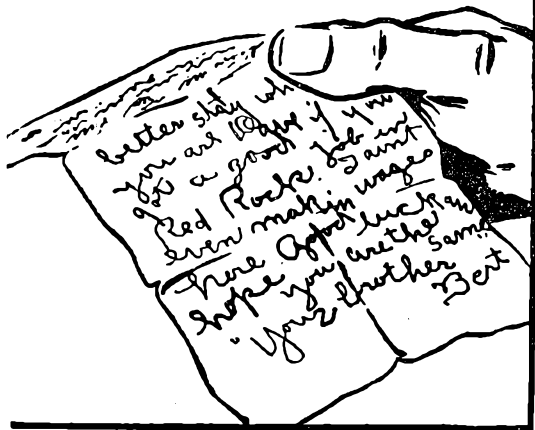 better stay wh
you are Dave if you
got a good job in
Red Rock. I aint
even makin wages
here Good luck an
hope you are the same
"Your brother
Bert